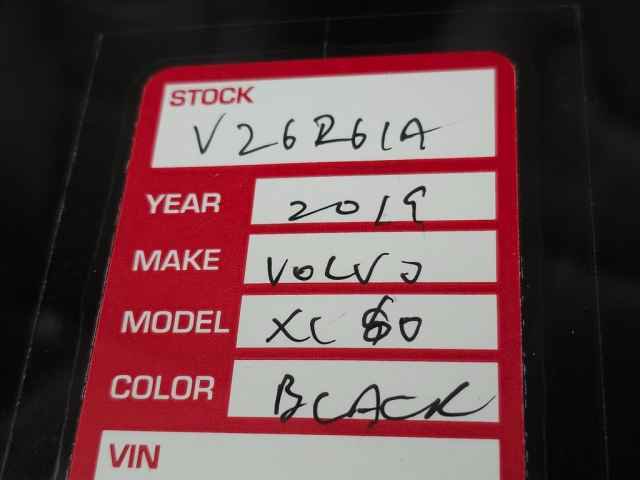 STOCK
V26R61A
YEAR 2019
MAKE VOLVO
MODEL XC60
COLOR BLACK
VIN